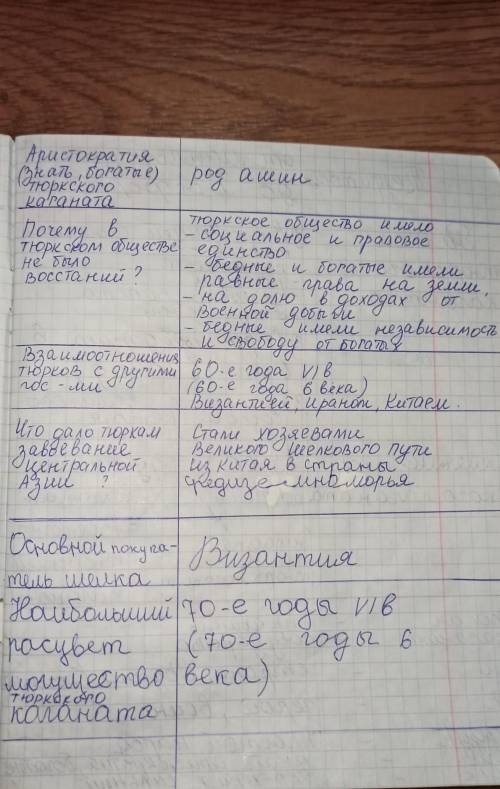 Аристократия
(знать, богатые)
тюркского
каганата
род ашин
Почему в
тюрском обществе
не было
восстаний?
тюркское общество имело
- социальное и правовое
единство
- бедные и богатые имели
равные права на земли.
- на долю в доходах от
военной добычи
- бедные имели независимость
и свободу от богатых
Взаимоотношения
тюрков с другими
гос-ми
60-е года VI в
(60-е года 6 века)
Византией, Ираном, Китаем.
Что дало тюркам
завоевание
центральной
Азии ?
Стали хозяевами
Великого шелкового пути
из Китая в страны
Средиземноморья
Основной покупа-
тель шелка
Византия
Наибольший
расцвет
могущество
тюркского
каганата
70-е годы VI в
(70-е годы 6
века)